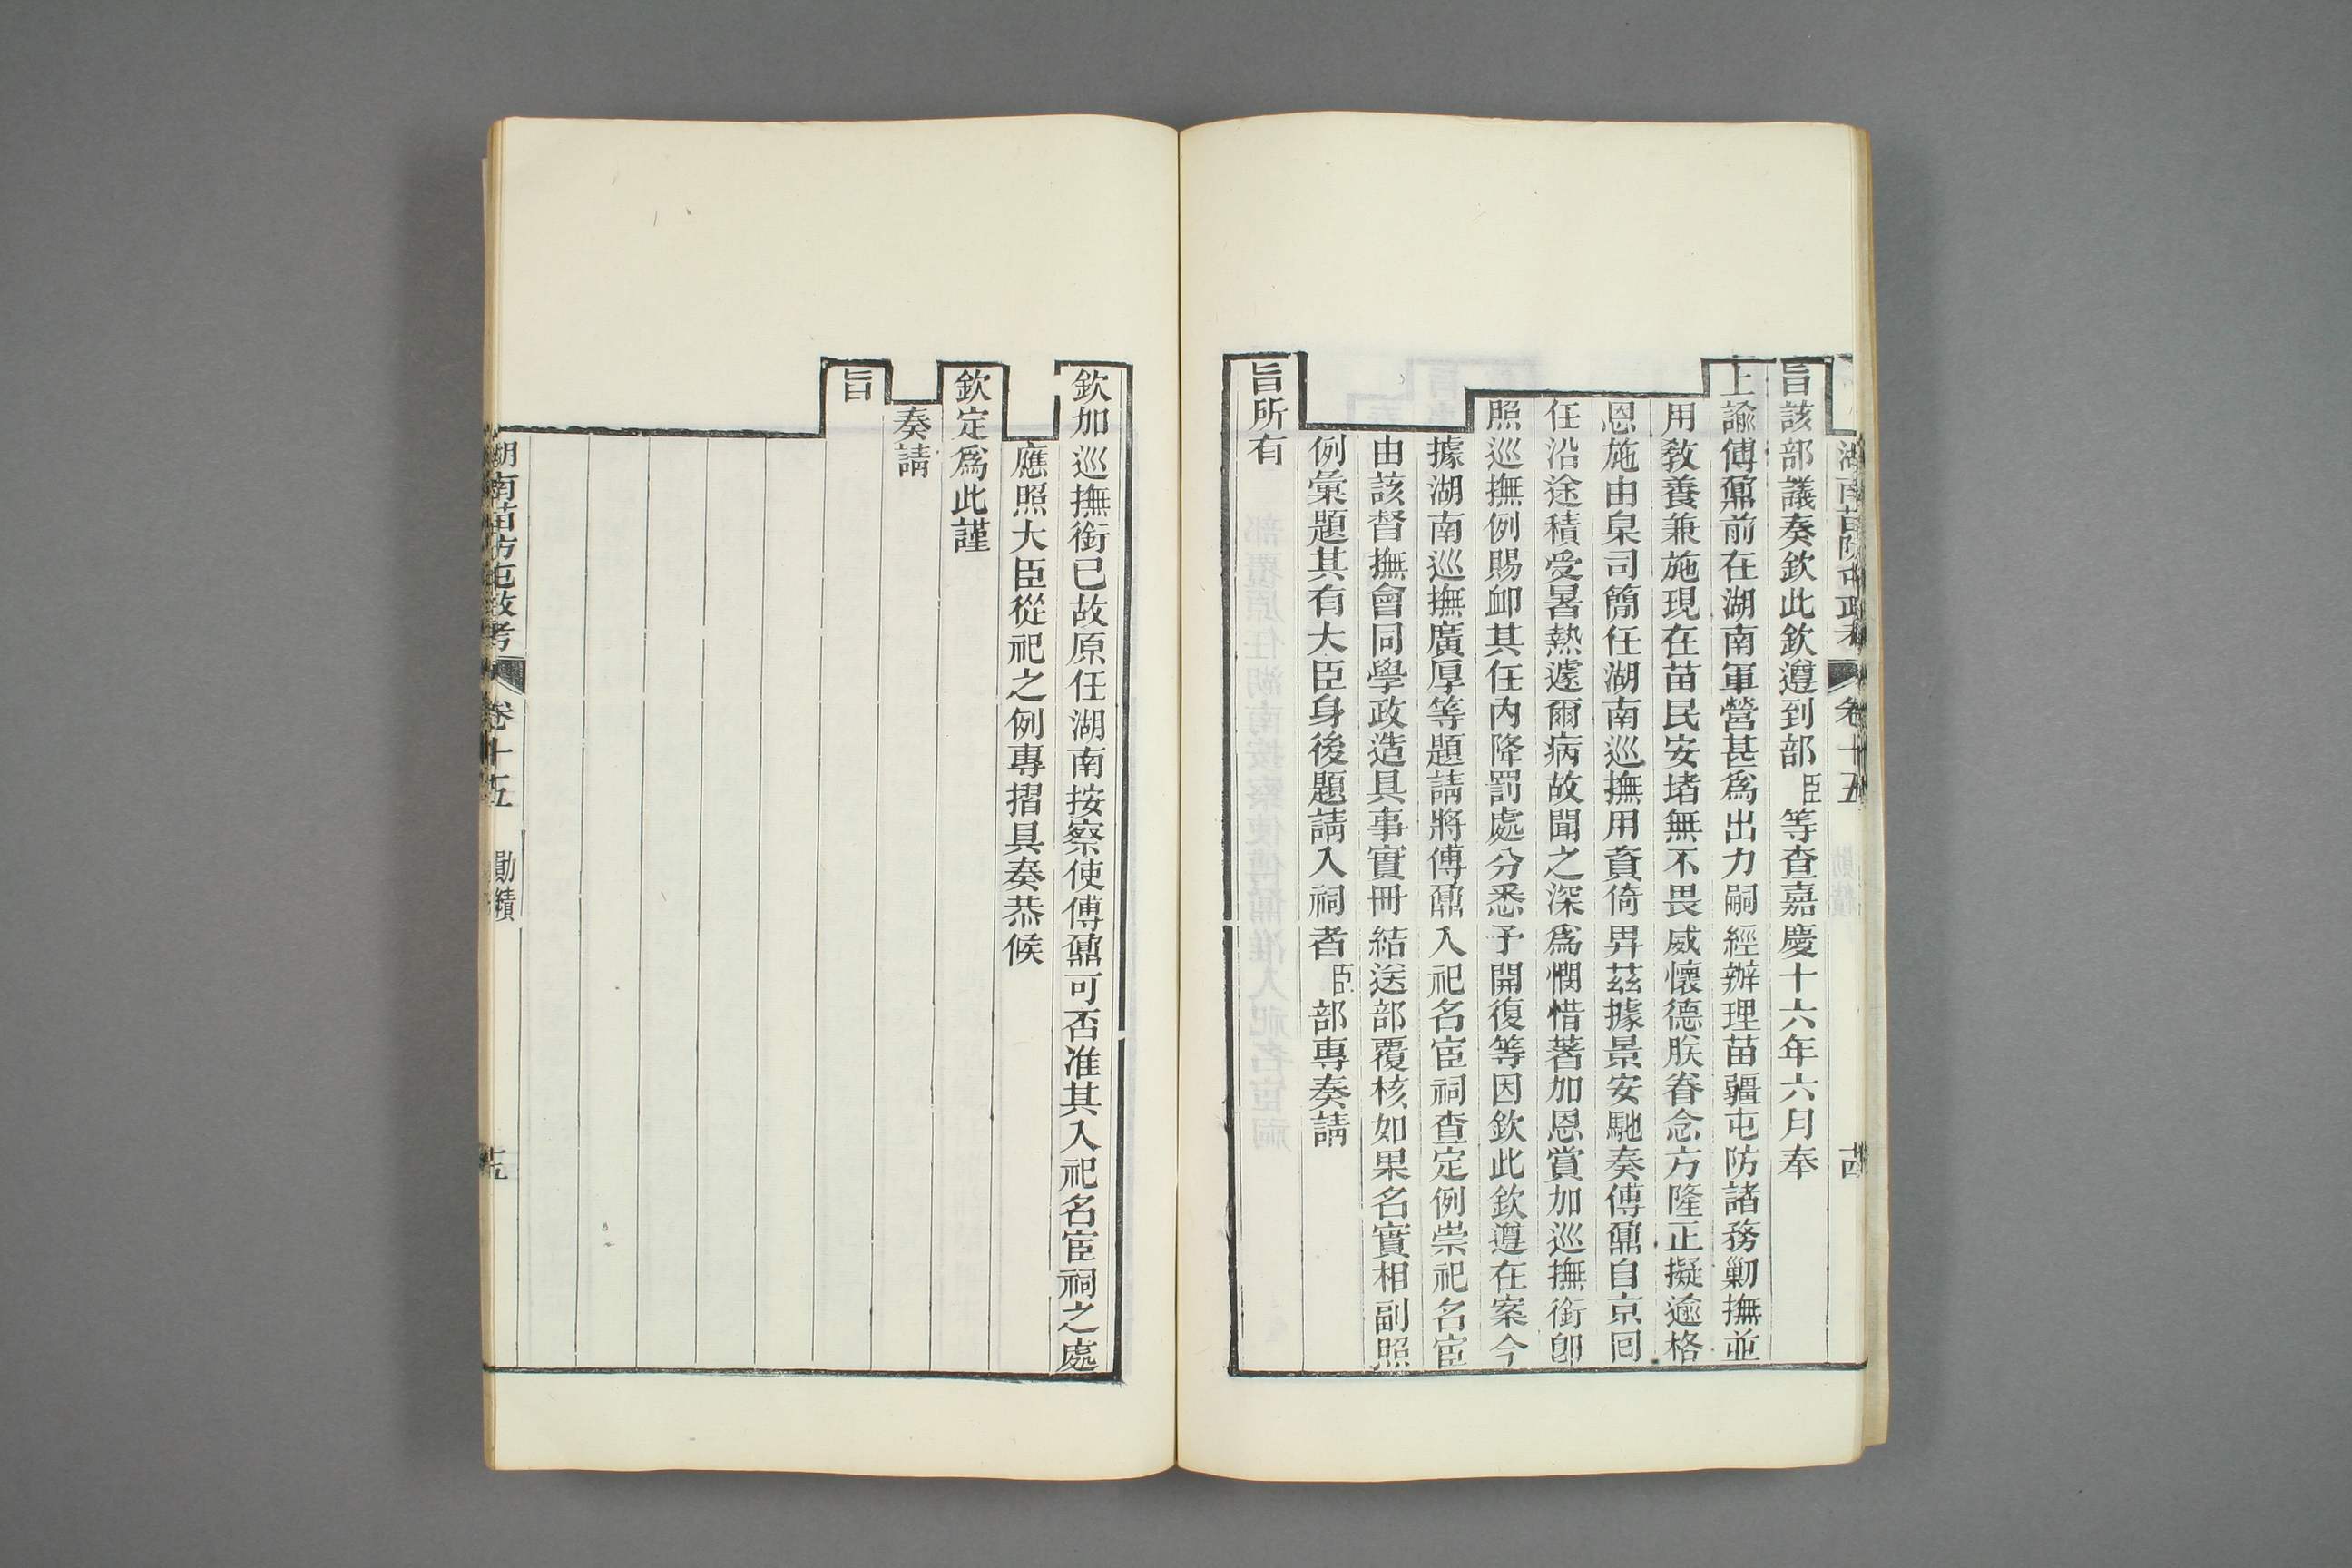 湖南苗防屯政考 卷十五 勛績 十四
旨該部議奏欽此欽遵到部臣等查嘉慶十六年六月奉
上諭傅鼐前在湖南軍營甚爲出力嗣經辦理苗疆屯防諸務剿撫並
用教養兼施現在苗民安堵無不畏威懷德朕眷念方隆正擬逾格
恩施由臬司簡任湖南巡撫用資倚畀茲據景安馳奏傅鼐自京回
任沿途積受暑熱遽爾病故聞之深爲憫惜著加恩賞加巡撫銜卽
照巡撫例賜卹其任內降罰處分悉予開復等因欽此欽遵在案今
據湖南巡撫廣厚等題請將傅鼐入祀名宦祠查定例崇祀名宦
由該督撫會同學政造具事實冊結送部覆核如果名實相副照
例彙題其有大臣身後題請入祠者臣部專奏請
旨所有
欽加巡撫銜已故原任湖南按察使傅鼐可否准其入祀名宦祠之處
應照大臣從祀之例專摺具奏恭候
欽定爲此謹
奏請
旨
湖南苗防屯政考 卷十五 勛績 十五